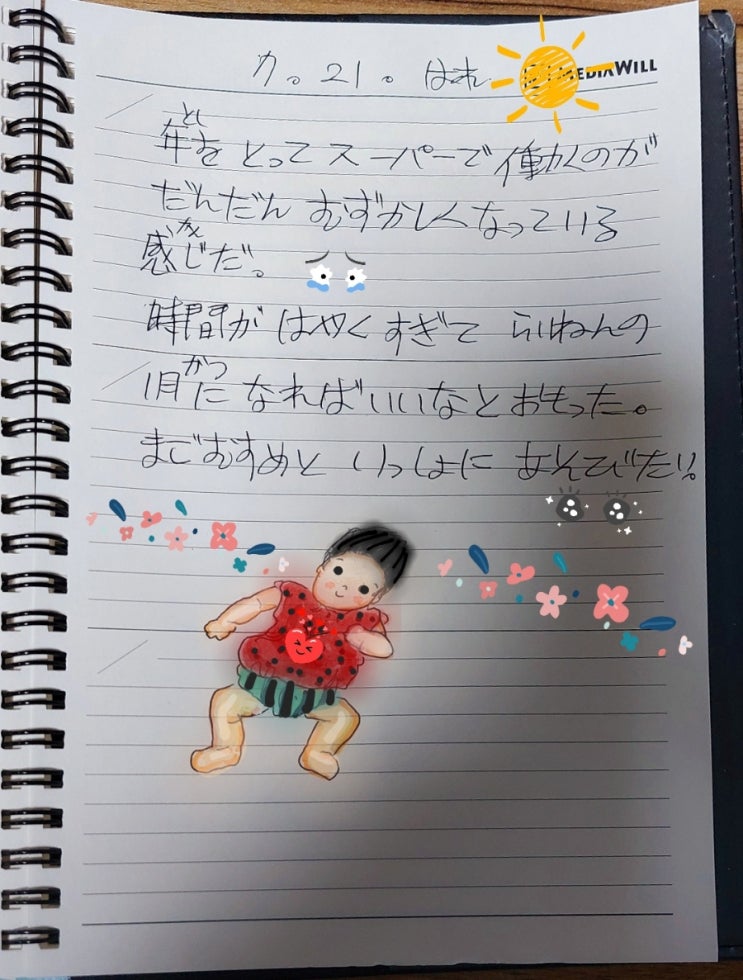 7。21。はれ
MEDIAWILL
年をとってスーパーで働くのが
とし
だんだんむずかしくなっている
感じだ。
かん
時間がはやくすぎてらいねんの
1月になればいいなとおもった。
がつ
まごむすめといっしょにあそびたい。